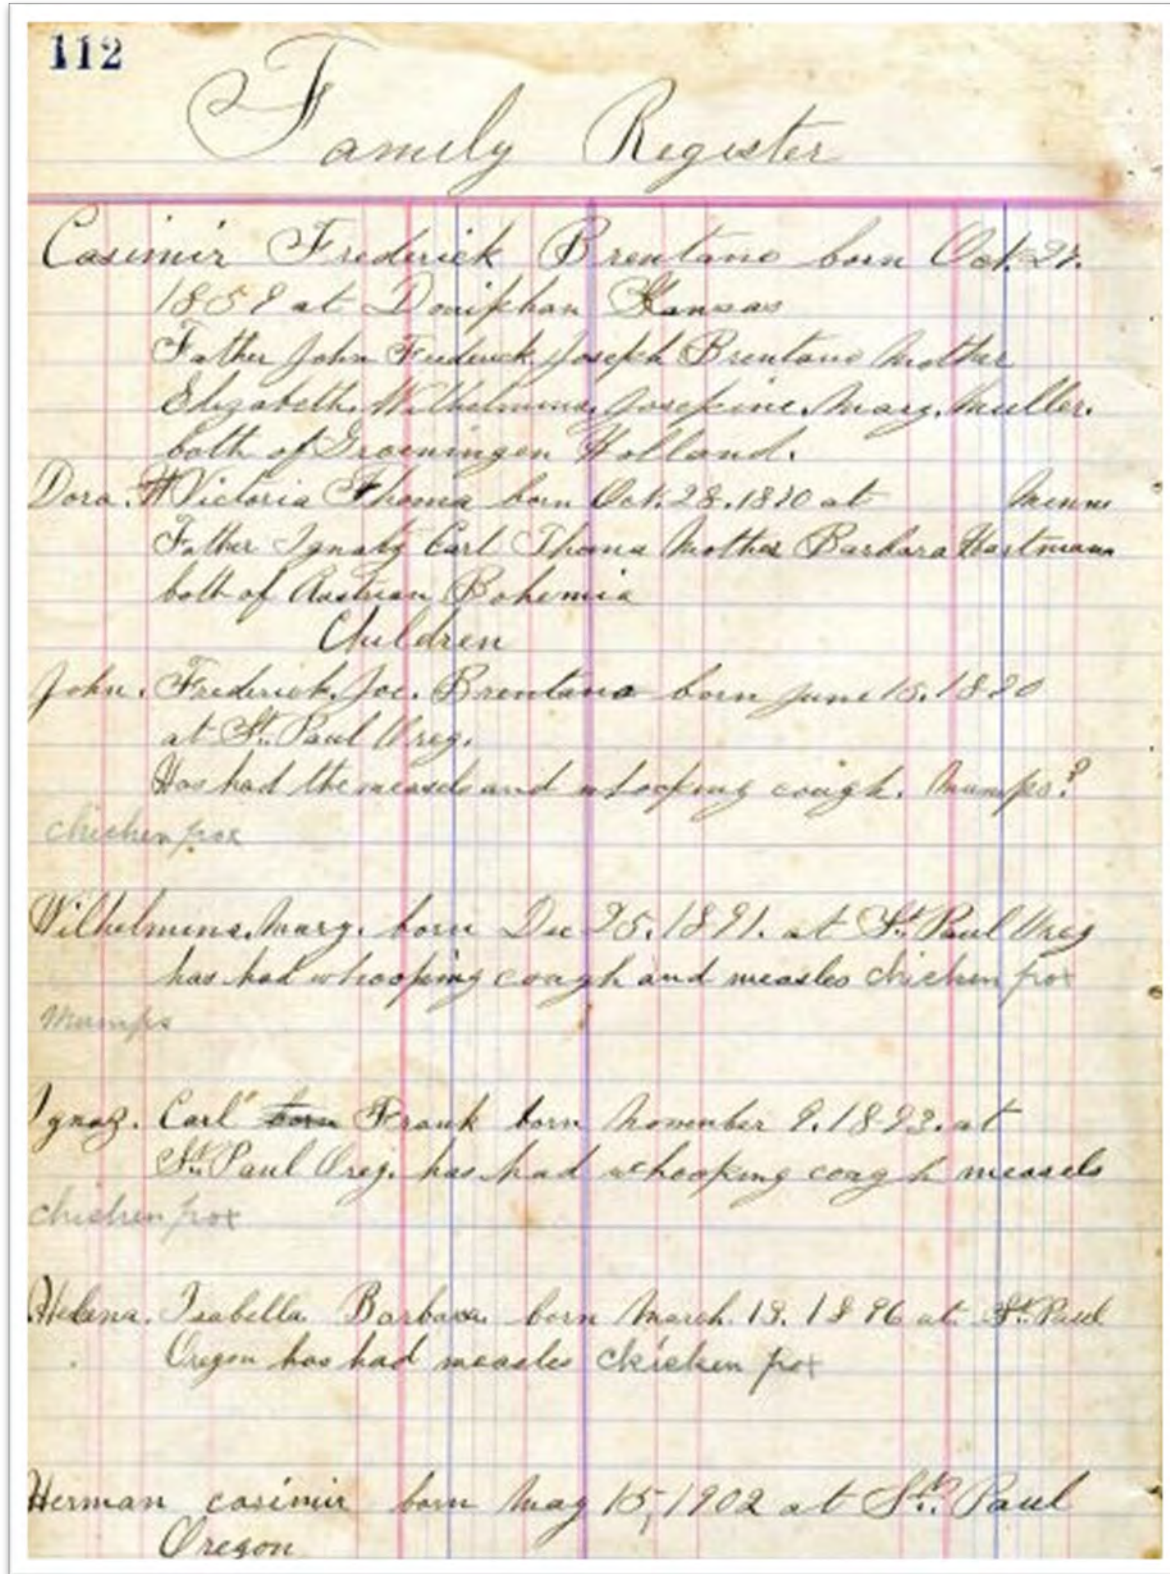 112
Family Register
Casimir Frederick Brentano born Oct. 27.
1859 at Doniphan Kansas
Father John Frederick Joseph Brentano Mother
Elizabeth. Wilhelmina. Josepine. Mary. Muller.
both of Groeningen Holland.
Dora. Victoria Thoma born Oct. 28. 1870 at Minne
Father Ignatz Carl Thoma Mother Barbara Hartmann
both of Austrian Bohemia
Children
John. Frederick. Joe. Brentano born June 15. 1890
at St. Paul Oreg.
Has had the measels and whooping cough. Mumps?
chicken pox
Wilhelmina. Mary. born Dec 25. 1891. at St. Paul Oreg
has had whooping cough and measles chicken pox
Mumps
Ignaz. Carl born Frank born November 9. 1893. at
St. Paul Oreg. has had whooping cough measels
chicken pox
Helena. Isabella Barbara born March. 13. 1896 at St. Paul
Oregon has had measles chicken pox
Herman casimir born May 15, 1902 at St. Paul
Oregon